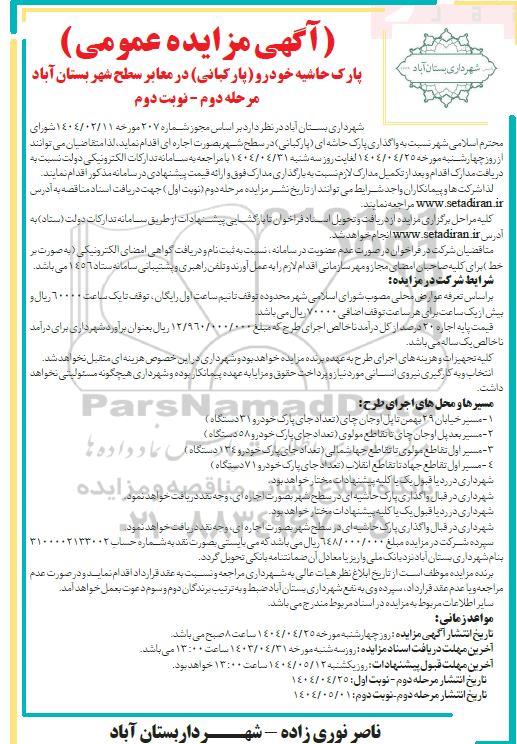 (آگهی مزایده عمومی)
شهرداری بستان آباد
پارک حاشیه خودرو (پارکبانی) در معابر سطح شهر بستان آباد
مرحله دوم - نوبت دوم
شهرداری بستان آباد در نظر دارد بر اساس مجوز شماره ۲۰۷ مورخه ۱۴۰۴/۰۲/۱۱ شورای
محترم اسلامی شهر نسبت به واگذاری پارک حاشیه ای (پارکبانی) در سطح شهر بصورت اجاره ای اقدام نماید، لذا متقاضیان می توانند
از روز چهارشنبه مورخه ۱۴۰۴/۰۴/۲۵ لغایت روز سه شنبه ۱۴۰۴/۰۴/۳۱ با مراجعه به سامانه تدارکات الکترونیکی دولت نسبت به
دریافت مدارک اقدام و بعد از تکمیل مدارک لازم نسبت به بارگذاری مدارک فوق و ارائه قیمت پیشنهادی در سامانه مذکور اقدام نمایند.
لذا شرکت ها و پیمانکاران واجد شرایط می توانند از تاریخ نشر مزایده مرحله دوم (نوبت اول) جهت دریافت اسناد مناقصه به آدرس
www.setadiran.ir مراجعه نمایند.
کلیه مراحل برگزاری مزایده از دریافت و تحویل اسناد فراخوان تا بازگشایی پیشنهادات از طریق سامانه تدارکات دولت (ستاد) به
آدرس www.setadiran.ir انجام خواهد شد.
متقاضیان شرکت در فراخوان در صورت عدم عضویت در سامانه، نسبت به ثبت نام و دریافت گواهی امضای الکترونیکی (به صورت بر
خط) برای کلیه صاحبان امضای مجاز و مهر سازمانی اقدام لازم را به عمل آورند و تلفن راهبری و پشتیبانی سامانه ستاد ۱۴۵۶ می باشد.
شرایط شرکت در مزایده:
بر اساس تعرفه عوارض محلی مصوب شورای اسلامی شهر محدوده توقف تا نیم ساعت اول رایگان، توقف تا یک ساعت ۶۰۰۰۰ ریال و
بیش از یک ساعت برای هر ساعت توقف اضافی ۷۰۰۰۰ ریال می باشد.
قیمت پایه اجاره ۲۰ درصد از کل درآمد ناخالص اجرای طرح که مبلغ ۱۲/۹۶۰/۰۰۰/۰۰۰ ریال بعنوان برآورد شهرداری برای درآمد
ناخالص یک ساله می باشد.
کلیه تجهیزات و هزینه های اجرای طرح به عهده برنده مزایده خواهد بود و شهرداری در این خصوص هزینه ای متقبل نخواهد شد.
انتخاب و به کارگیری نیروی انسانی مورد نیاز و پرداخت حقوق و مزایا به عهده پیمانکار بوده و شهرداری هیچگونه مسئولیتی نخواهد
داشت.
مسیرها و محل های اجرای طرح:
۱- مسیر خیابان ۲۹ بهمن تا پل اوجان چای (تعداد جای پارک خودرو ۳۱ دستگاه)
۲- مسیر بعد پل اوجان چای تا تقاطع مولوی (تعداد جای پارک خودرو ۵۸ دستگاه)
۳- مسیر اول تقاطع مولوی تا تقاطع جهاد شمالی (تعداد جای پارک خودرو ۱۳۴ دستگاه)
۴- مسیر اول تقاطع جهاد تا تقاطع انقلاب (تعداد جای پارک خودرو ۷۱ دستگاه)
شهرداری در رد یا قبول یک یا کلیه پیشنهادات مختار خواهد بود.
شهرداری در قبال واگذاری پارک حاشیه ای در سطح شهر بصورت اجاره ای، وجه نقد دریافت خواهد نمود.
شهرداری در رد یا قبول یک یا کلیه پیشنهادات مختار خواهد بود.
شهرداری در قبال واگذاری پارک حاشیه ای در سطح شهر بصورت اجاره ای، وجه نقد دریافت خواهد نمود.
سپرده شرکت در مزایده مبلغ ۶۴۸/۰۰۰/۰۰۰ ریال می باشد که می بایستی بصورت نقد به شماره حساب ۳۱۰۰۰۰۲۱۳۳۰۰۲
بنام شهرداری بستان آباد نزد بانک ملی واریز یا معادل آن ضمانتنامه بانکی تحویل گردد.
برنده مزایده موظف است از تاریخ ابلاغ نظر هیات عالی به شهرداری مراجعه و نسبت به عقد قرارداد اقدام نماید و در صورت عدم
مراجعه و یا عدم عقد قرارداد، سپرده وی به نفع شهرداری بستان آباد ضبط و به ترتیب برندگان دوم و سوم دعوت بعمل خواهد آمد.
سایر اطلاعات مربوط به مزایده در اسناد مربوط مندرج می باشد.
مواعد زمانی:
تاریخ انتشار آگهی مزایده: روز چهارشنبه مورخه ۱۴۰۴/۰۴/۲۵ ساعت ۸ صبح می باشد.
آخرین مهلت دریافت اسناد مزایده: روز سه شنبه مورخه ۱۴۰۳/۰۴/۳۱ ساعت ۱۳:۰۰ می باشد.
آخرین مهلت قبول پیشنهادات: روز یکشنبه ۱۴۰۴/۰۵/۱۲ ساعت ۱۳:۰۰ خواهد بود.
تاریخ انتشار مرحله دوم - نوبت اول: ۱۴۰۴/۰۴/۲۵
تاریخ انتشار مرحله دوم - نوبت دوم: ۱۴۰۴/۰۵/۰۱
ناصر نوری زاده - شهردار بستان آباد
ParsNamadData